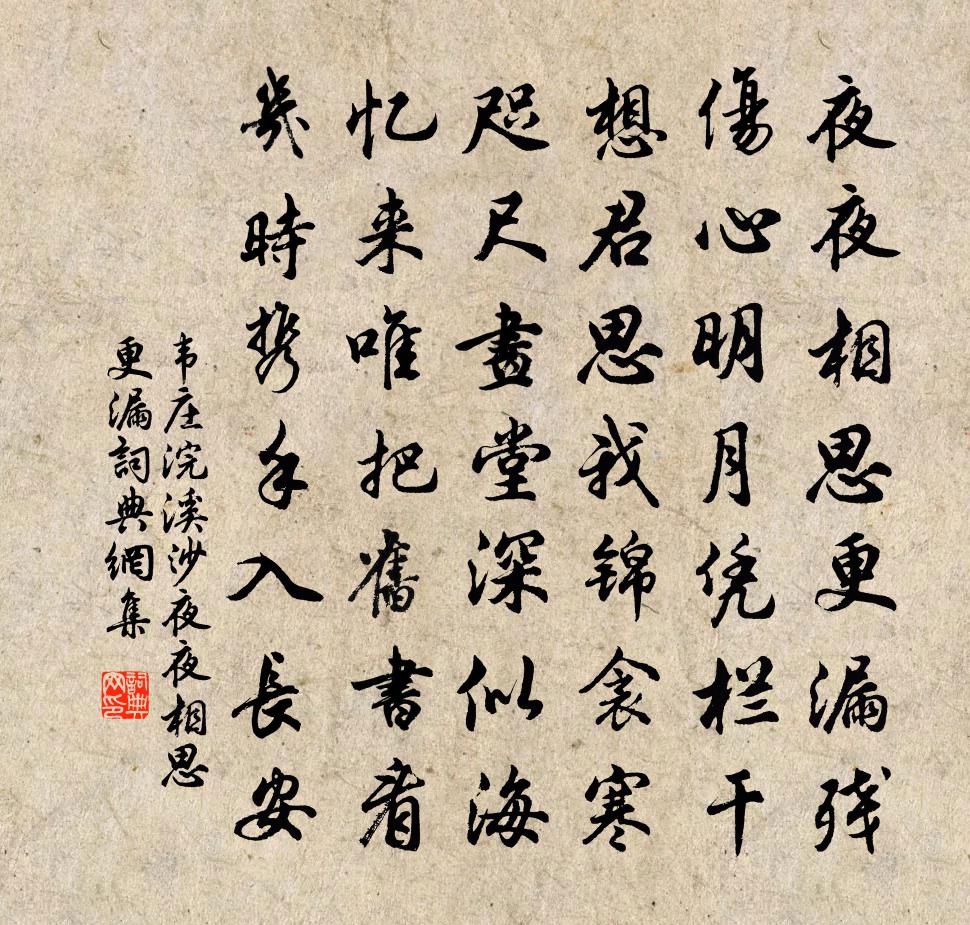 夜夜相思更漏残
傷心明月凭栏干
想君思我锦衾寒
咫尺畫堂深似海
忆来唯把舊書看
幾時携手入長安
韦庄浣溪沙夜夜相思
更漏詞典網集
詞典
网印